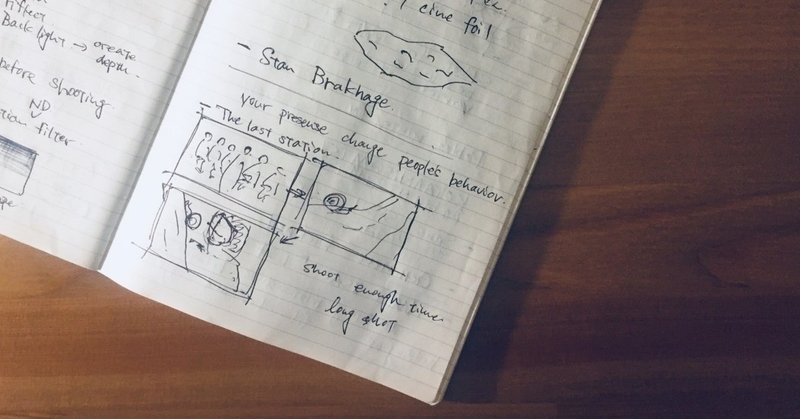 Back light → create
depth.
before shooting
ND
filter
cine foil
- Stan Brakhage.
your presense change people's behavior.
- The last station.
shoot enough time
long shot